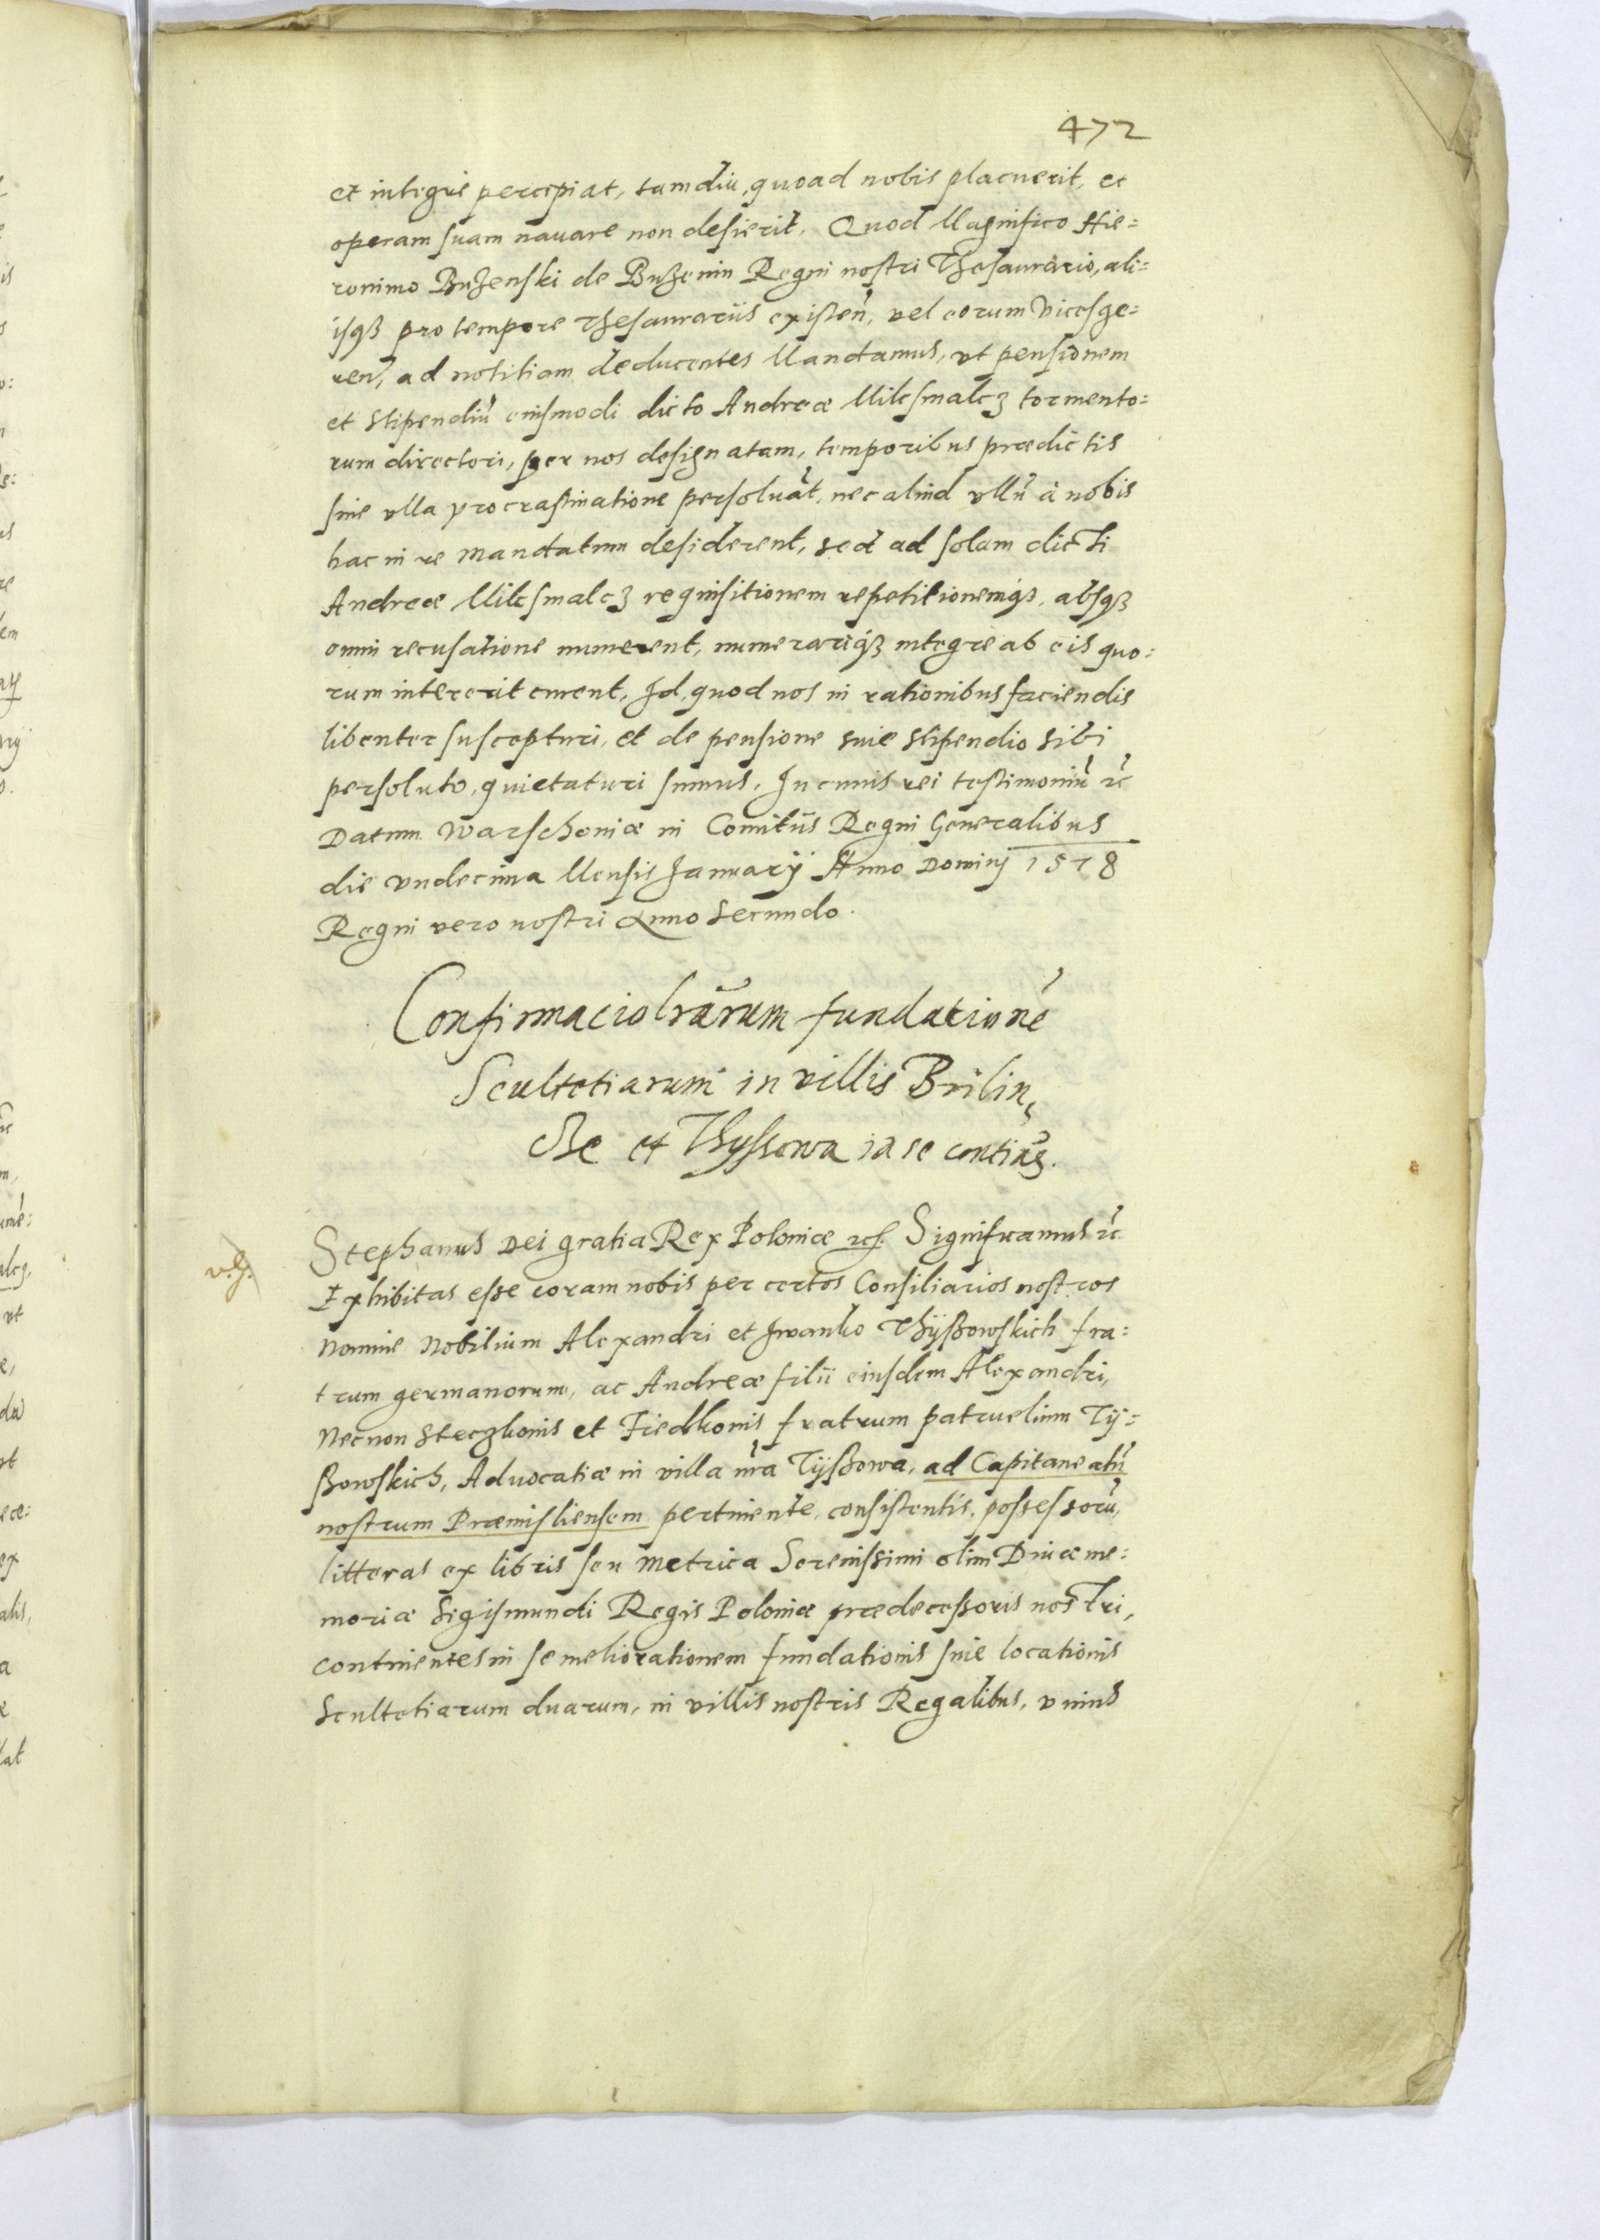 472
et integre percipiat, tamdiu, quoad nobis placuerit, et
operam suam navare non desierit. Quod Magnifico Hie=
ronimo Buzenski de Buzenin Regni nostri Thesaurario, ali=
isqꝫ pro tempore Thesaurariis existen̄, vel eorum Vicesge=
ren̄, ad notitiam deducentes Mandamus, vt pensionem
et Stipendiū eiusmodi dicto Andreæ Milcsmalcz tormento=
rum directori, per nos designatam, temporibus prædictis
sine vlla procrastinatione persoluāt, nec aliud vllū à nobis
hac in re Mandatum desiderent, sed ad solam dicti
Andreæ Milcsmalcz requisitionem repetitionemqꝫ, absqꝫ
omni recusatione numerent, numerariqꝫ integre ab eis quo=
rum intererit curent, Id, quod nos in rationibus faciendis
libenter suscepturi, et de pensione siue stipendio sibi
persoluto, quietaturi sumus. In cuius rei testimoniū ꝛc̄
Datum Warschoviæ in Comitiis Regni Generalibus
die vndecima Mensis Januarij Anno Dominj 1578
Regni vero nostri Anno Secundo.
Confirmacio lrārum fundationē
Scultetiarum in villis Brilin,
cze et Thyssowa in se contiñ.
v.g.
Stephanus Dei gratia Rex Poloniæ ꝛc̄. Significamus ꝛc̄
Exhibitas esse coram nobis per certos Consiliarios nostros
Nomine Nobilium Alexandri et Iwanko Thÿßowskich fra=
trum germanorum, ac Andreæ filii eiusdem Alexandri,
Necnon Steczkonis et Fiedkonis fratrum patruelium Tÿ=
ßowskich, Aduocatiæ in villa nr̄a Tyßowa, ad Capitaneatū
nostrum Præmisliensem pertinente, consistentis, possessorū,
litteras ex libris seu Metrica Serenissimi olim Diuæ me=
moriæ Sigismundi Regis Poloniæ prædecessoris nostri,
continentes in se meliorationem fundationis siue locationis
Scultetiarum duarum, in villis nostris Regalibus, vnius